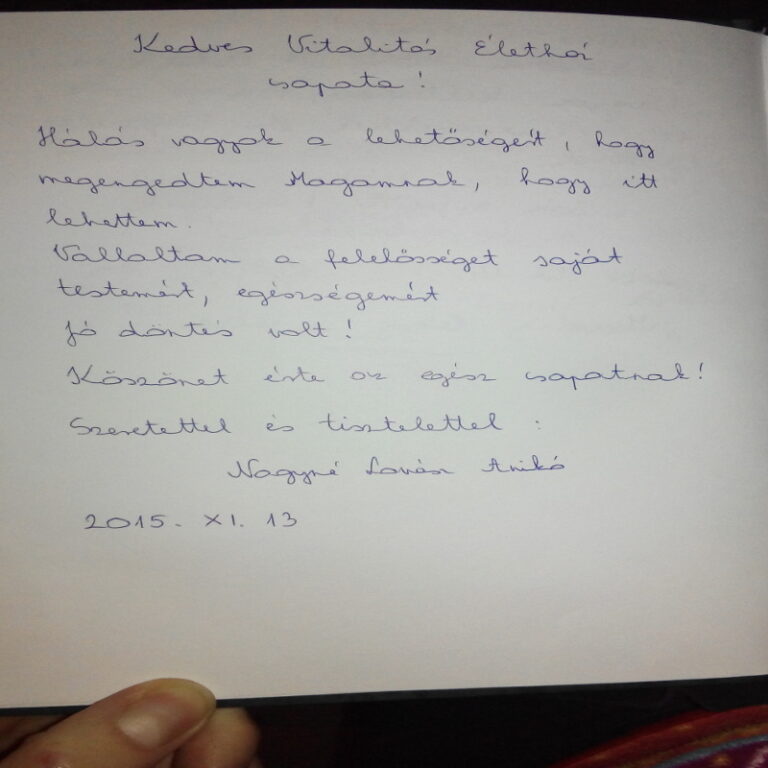 Kedves Vitalitás Életház
csapata!
Hálás vagyok a lehetőségért, hogy
megengedtem Magamnak, hogy itt
lehettem.
Vállaltam a felelősséget saját
testemért, egészségemért
Jó döntés volt!
Köszönet érte az egész csapatnak!
Szeretettel és tisztelettel :
Nagyné Lovász Anikó
2015. XI. 13